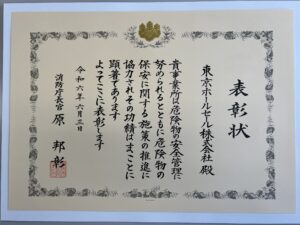 表彰状
東京ホールセル株式会社殿
貴事業所は危険物の安全管理に
努められるとともに危険物の
保安に関する施策の推進に
協力されその功績はまことに
顕著であります
よってここに表彰します
令和六年六月三日
消防庁長官 原 邦彰